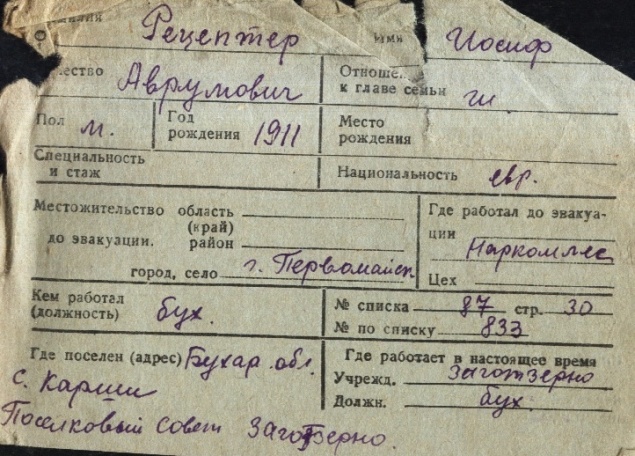 Рецептер имя Иосиф
Аврумович Отноше к главе семьи гл.
Пол м. Год рождения 1911 Место рождения
Специальность и стаж
Национальность евр.
Местожительство область
(край)
до эвакуации. район
город, село г. Первомайск.
Где работал до эвакуации Наркомлес
Цех
Кем работал (должность) бух.
№ списка 87 стр. 30
№ по списку 833
Где поселен (адрес) Бухар. обл.
с. Карши
Поселковый совет Заготзерно.
Где работает в настоящее время
Учрежд. Заготзерно
Должн. бух.